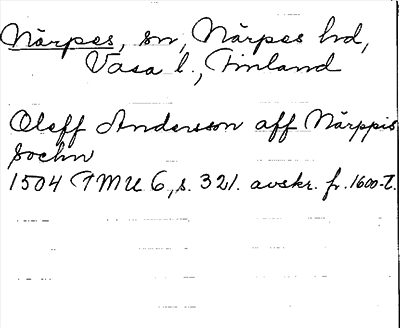 Närpes, sn, Närpes hd,
Vasa l., Finland
Oleff Andersson aff Närppis
sochn
1504 FMU 6, s. 321. avskr. fr. 1600-t.